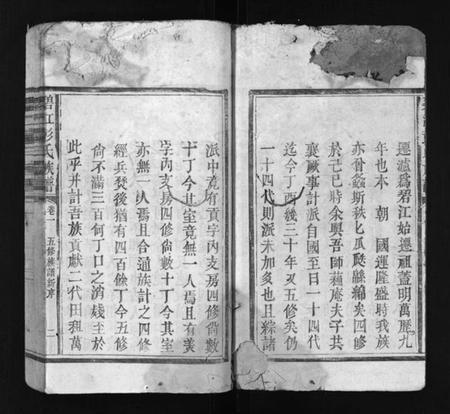 遷瀘爲碧江始遷祖蓋明萬歷九
年也本 朝 國運隆盛時我族
亦曾螽斯秩匕瓜瓞綿綿矣四修
於己巳時余與吾師藕庵夫子共
襄厥事計派自國至日一十四代
迄今丁酉幾三十年又五修矣仍
一十四代則派未加多也且綜諸
派中竟有貢字內支房四修尚數
十丁今其室竟無一人焉且有美
字丙支房四修尚數十丁今其室
亦無一人焉且合通族計之四修
經兵燹後猶有四百餘丁今五修
尚不滿三百何丁口之消㦮至於
此乎并計吾族貢獻二代田租萬
碧江彭氏族譜 卷一 五修族譜新序 二